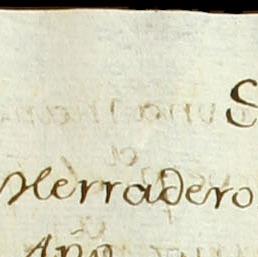 S
Herradero
Año